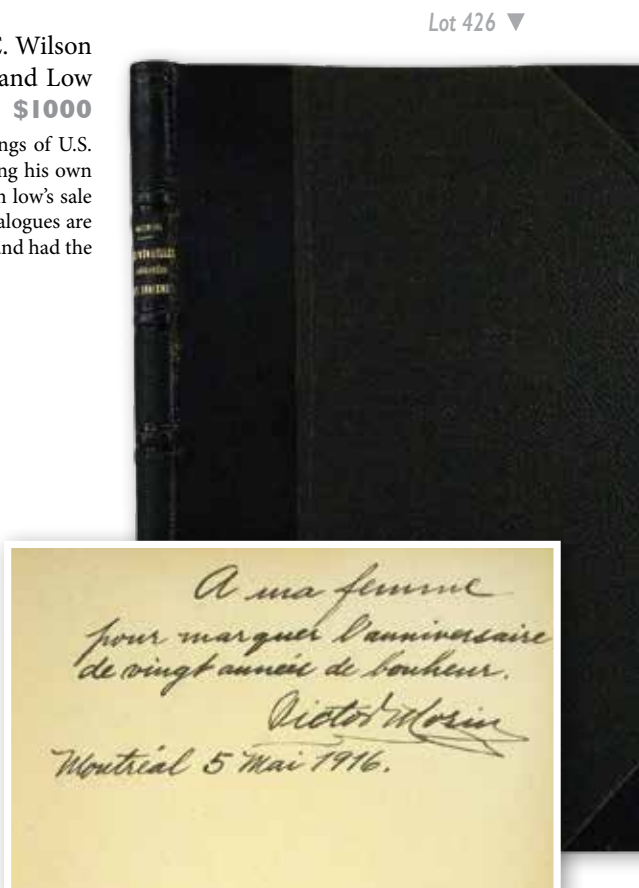 Lot 426 ▼
C. Wilson
and Low
$1000
ngs of U.S.
ng his own
n low's sale
alogues are
and had the
A ma femme
pour marquer l'anniversaire
de vingt années de bonheur.
Victor Morin
Montréal 5 Mai 1916.